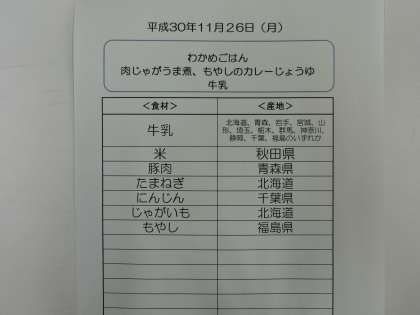 平成30年11月26日（月）
わかめごはん
肉じゃがうま煮、もやしのカレーじょうゆ
牛乳
＜食材＞ ＜産地＞
牛乳 北海道、青森、岩手、宮城、山
形、埼玉、栃木、群馬、神奈川、
静岡、千葉、福島のいずれか
米 秋田県
豚肉 青森県
たまねぎ 北海道
にんじん 千葉県
じゃがいも 北海道
もやし 福島県